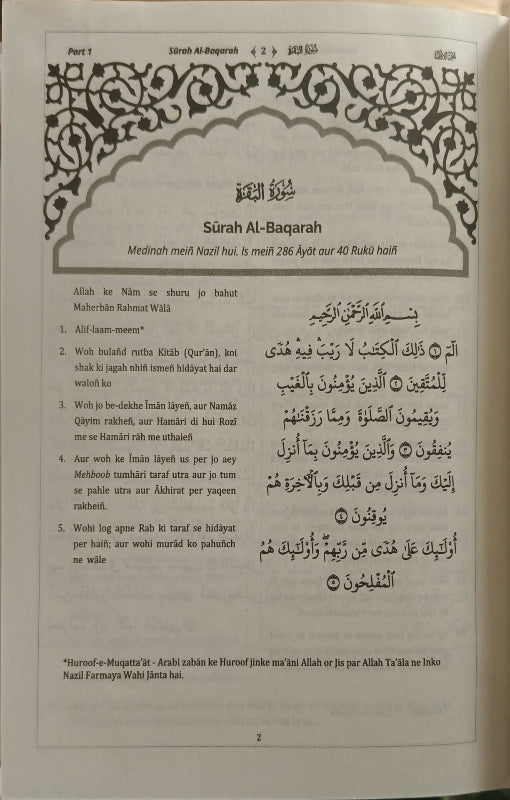 Part 1 Sūrah Al-Baqarah ﴾ 2 ﴿ سُوۡرَةُ الۡبَقَرَة
سُوۡرَةُ الۡبَقَرَة
Sūrah Al-Baqarah
Medinah meiñ Nazil hui. Is meiñ 286 Āyāt aur 40 Rukū haiñ
Allah ke Nām se shuru jo bahut
Maherbān Rahmat Wālā
1. Alif-laam-meem*
2. Woh bulañd rutba Kitāb (Qur'ān), koi
shak ki jagah nhiñ ismeñ hidāyat hai dar
waloñ ko
3. Woh jo be-dekhe Īmān lāyeñ, aur Namāz
Qāyim rakheñ, aur Hamāri di hui Rozī
me se Hamāri rāh me uthaieñ
4. Aur woh ke Īmān lāyeñ us per jo aey
Mehboob tumhāri taraf utra aur jo tum
se pahle utra aur Ākhirat per yaqeen
rakheiñ.
5. Wohi log apne Rab ki taraf se hidāyat
per haiñ; aur wohi murād ko pahuñch
ne wāle
بِسۡمِ اللّٰهِ الرَّحۡمٰنِ الرَّحِيۡمِ
الٓمّٓ ۝١ ذٰلِكَ الۡكِتٰبُ لَا رَيۡبَ ۛ فِيۡهِ ۛ هُدًى
لِّلۡمُتَّقِيۡنَ ۝٢ الَّذِيۡنَ يُؤۡمِنُوۡنَ بِالۡغَيۡبِ
وَيُقِيۡمُوۡنَ الصَّلٰوةَ وَمِمَّا رَزَقۡنٰهُمۡ
يُنۡفِقُوۡنَ ۝٣ وَالَّذِيۡنَ يُؤۡمِنُوۡنَ بِمَاۤ اُنۡزِلَ
اِلَيۡكَ وَمَاۤ اُنۡزِلَ مِنۡ قَبۡلِكَ وَبِالۡاٰخِرَةِ هُمۡ
يُوۡقِنُوۡنَ ۝٤
اُولٰٓئِكَ عَلٰى هُدًى مِّنۡ رَّبِّهِمۡ ۖ وَاُولٰٓئِكَ هُمُ
الۡمُفۡلِحُوۡنَ ۝٥
*Huroof-e-Muqatta'āt - Arabi zabān ke Huroof jinke ma'āni Allah or Jis par Allah Ta'āla ne Inko
Nazil Farmaya Wahi Jānta hai.
2